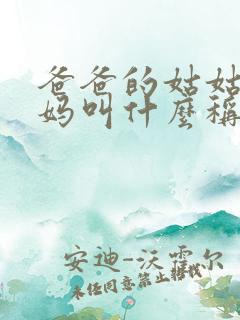 爸爸的姑姑
妈叫什麼稱
安迪-沃霍尔
未经同意禁止转载